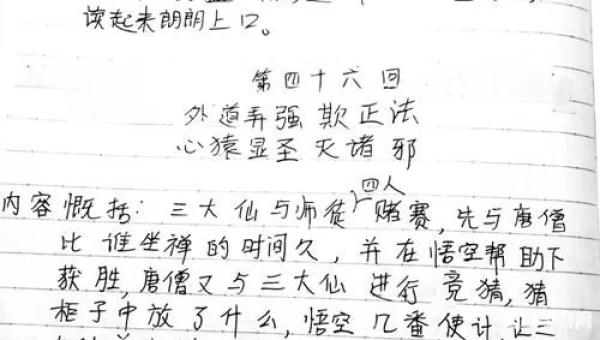 读起来朗朗上口。
第四十六回
外道弄强欺正法
心猿显圣灭诸邪
四人
内容慨括：三大仙与师徒赌赛，先与唐僧
比谁坐禅的时间久，并在悟空帮助下
获胜，唐僧又与三大仙进行竞猜，猜
柜子中放了什么，悟空几番使计，让三